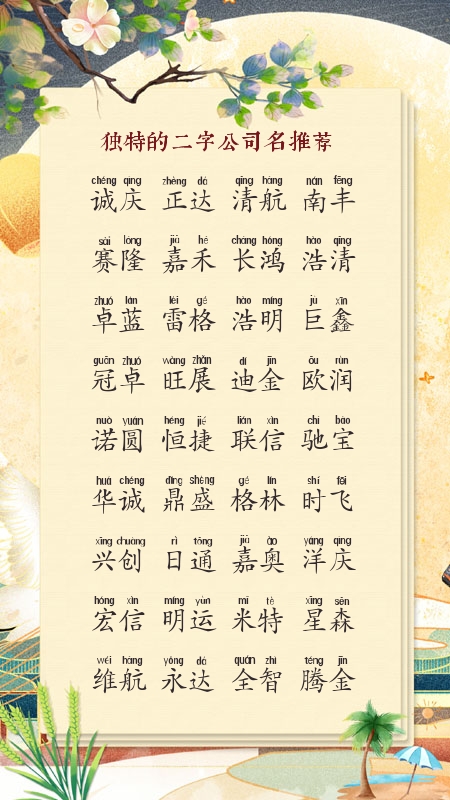 独特的二字公司名推荐
chéng qìng zhèng dá qīng háng nán fēng
诚庆 正达 清航 南丰
sài lóng jiā hé cháng hóng hào qīng
赛隆 嘉禾 长鸿 浩清
zhuó lán léi gé hào míng jù xīn
卓蓝 雷格 浩明 巨鑫
guān zhuó wàng zhǎn dí jīn ōu rùn
冠卓 旺展 迪金 欧润
nuò yuán héng jié lián xìn chí bǎo
诺圆 恒捷 联信 驰宝
huá chéng dǐng shèng gé lín shí fēi
华诚 鼎盛 格林 时飞
xīng chuàng rì tōng jiā ào yáng qìng
兴创 日通 嘉奥 洋庆
hóng xìn míng yùn mǐ tè xīng sēn
宏信 明运 米特 星森
wéi háng yǒng dá quán zhì téng jīn
维航 永达 全智 腾金